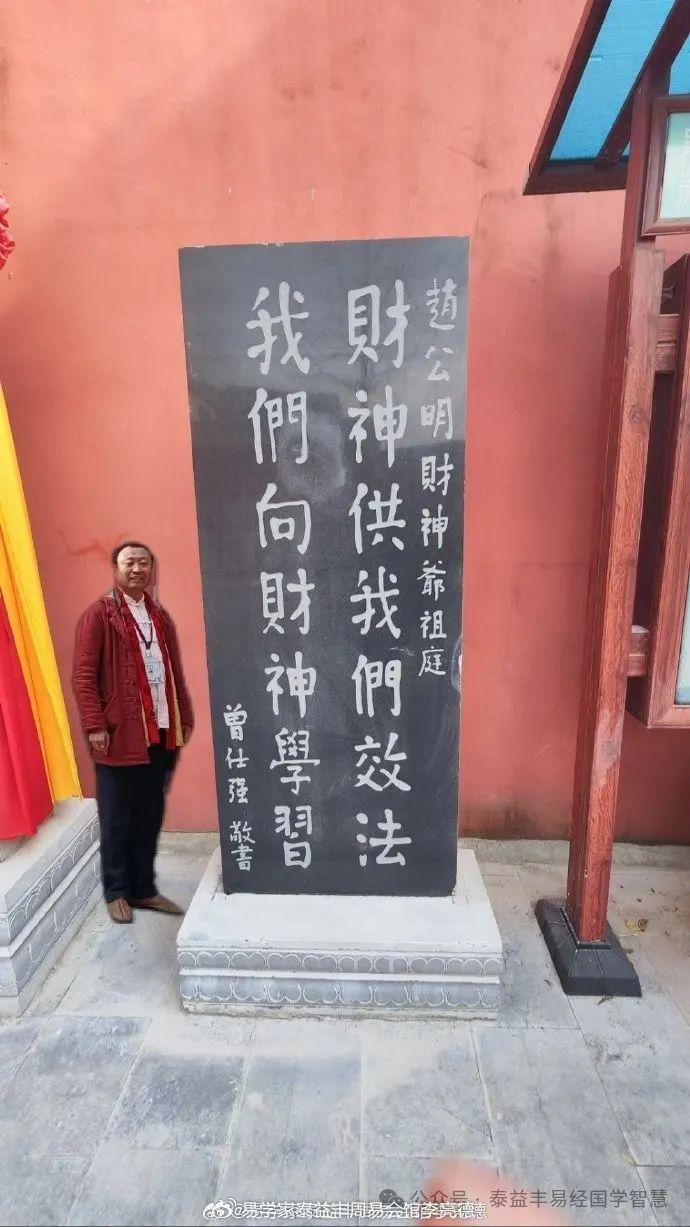 趙公明財神爺祖庭
財神供我們效法
我們向財神學習
曾仕强 敬書
公众号·泰益丰易经国学智慧
@易学家泰益丰周易会馆李亮德